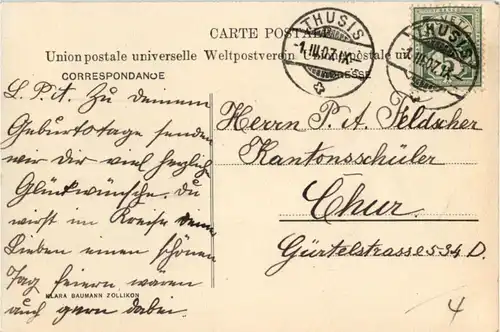 CARTE POSTALE
Union postale universelle Weltpostverein Unione postale
CORRESPONDANCE
ADRESSE
THUSIS
-1.III.07.IX-
THUSIS
-1.III.07.IX-
L. P. i. t. Zu deinem
Geburtstage senden
wir dir viel herzlich
Glückwünsche. Du
wirst im Kreise deine
Lieben einen schönen
Tag feiern wären
auch gern dabei.
Herrn P. i. t. Feldscher
Kantonsschüler
Chur.
Gürtelstrasse 534 D.
KLARA BAUMANN ZOLLIKON
4